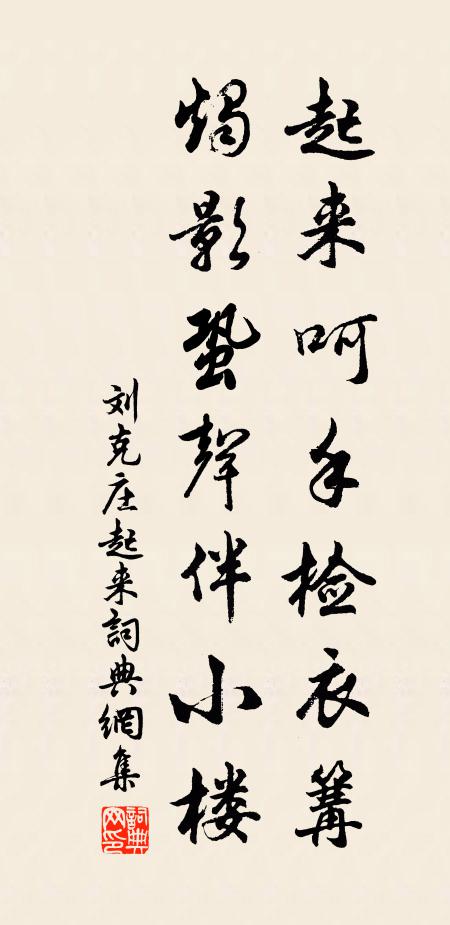 起来呵手检衣篝
烛影蛩聲伴小楼
刘克庄起来詞典網集
詞典网印